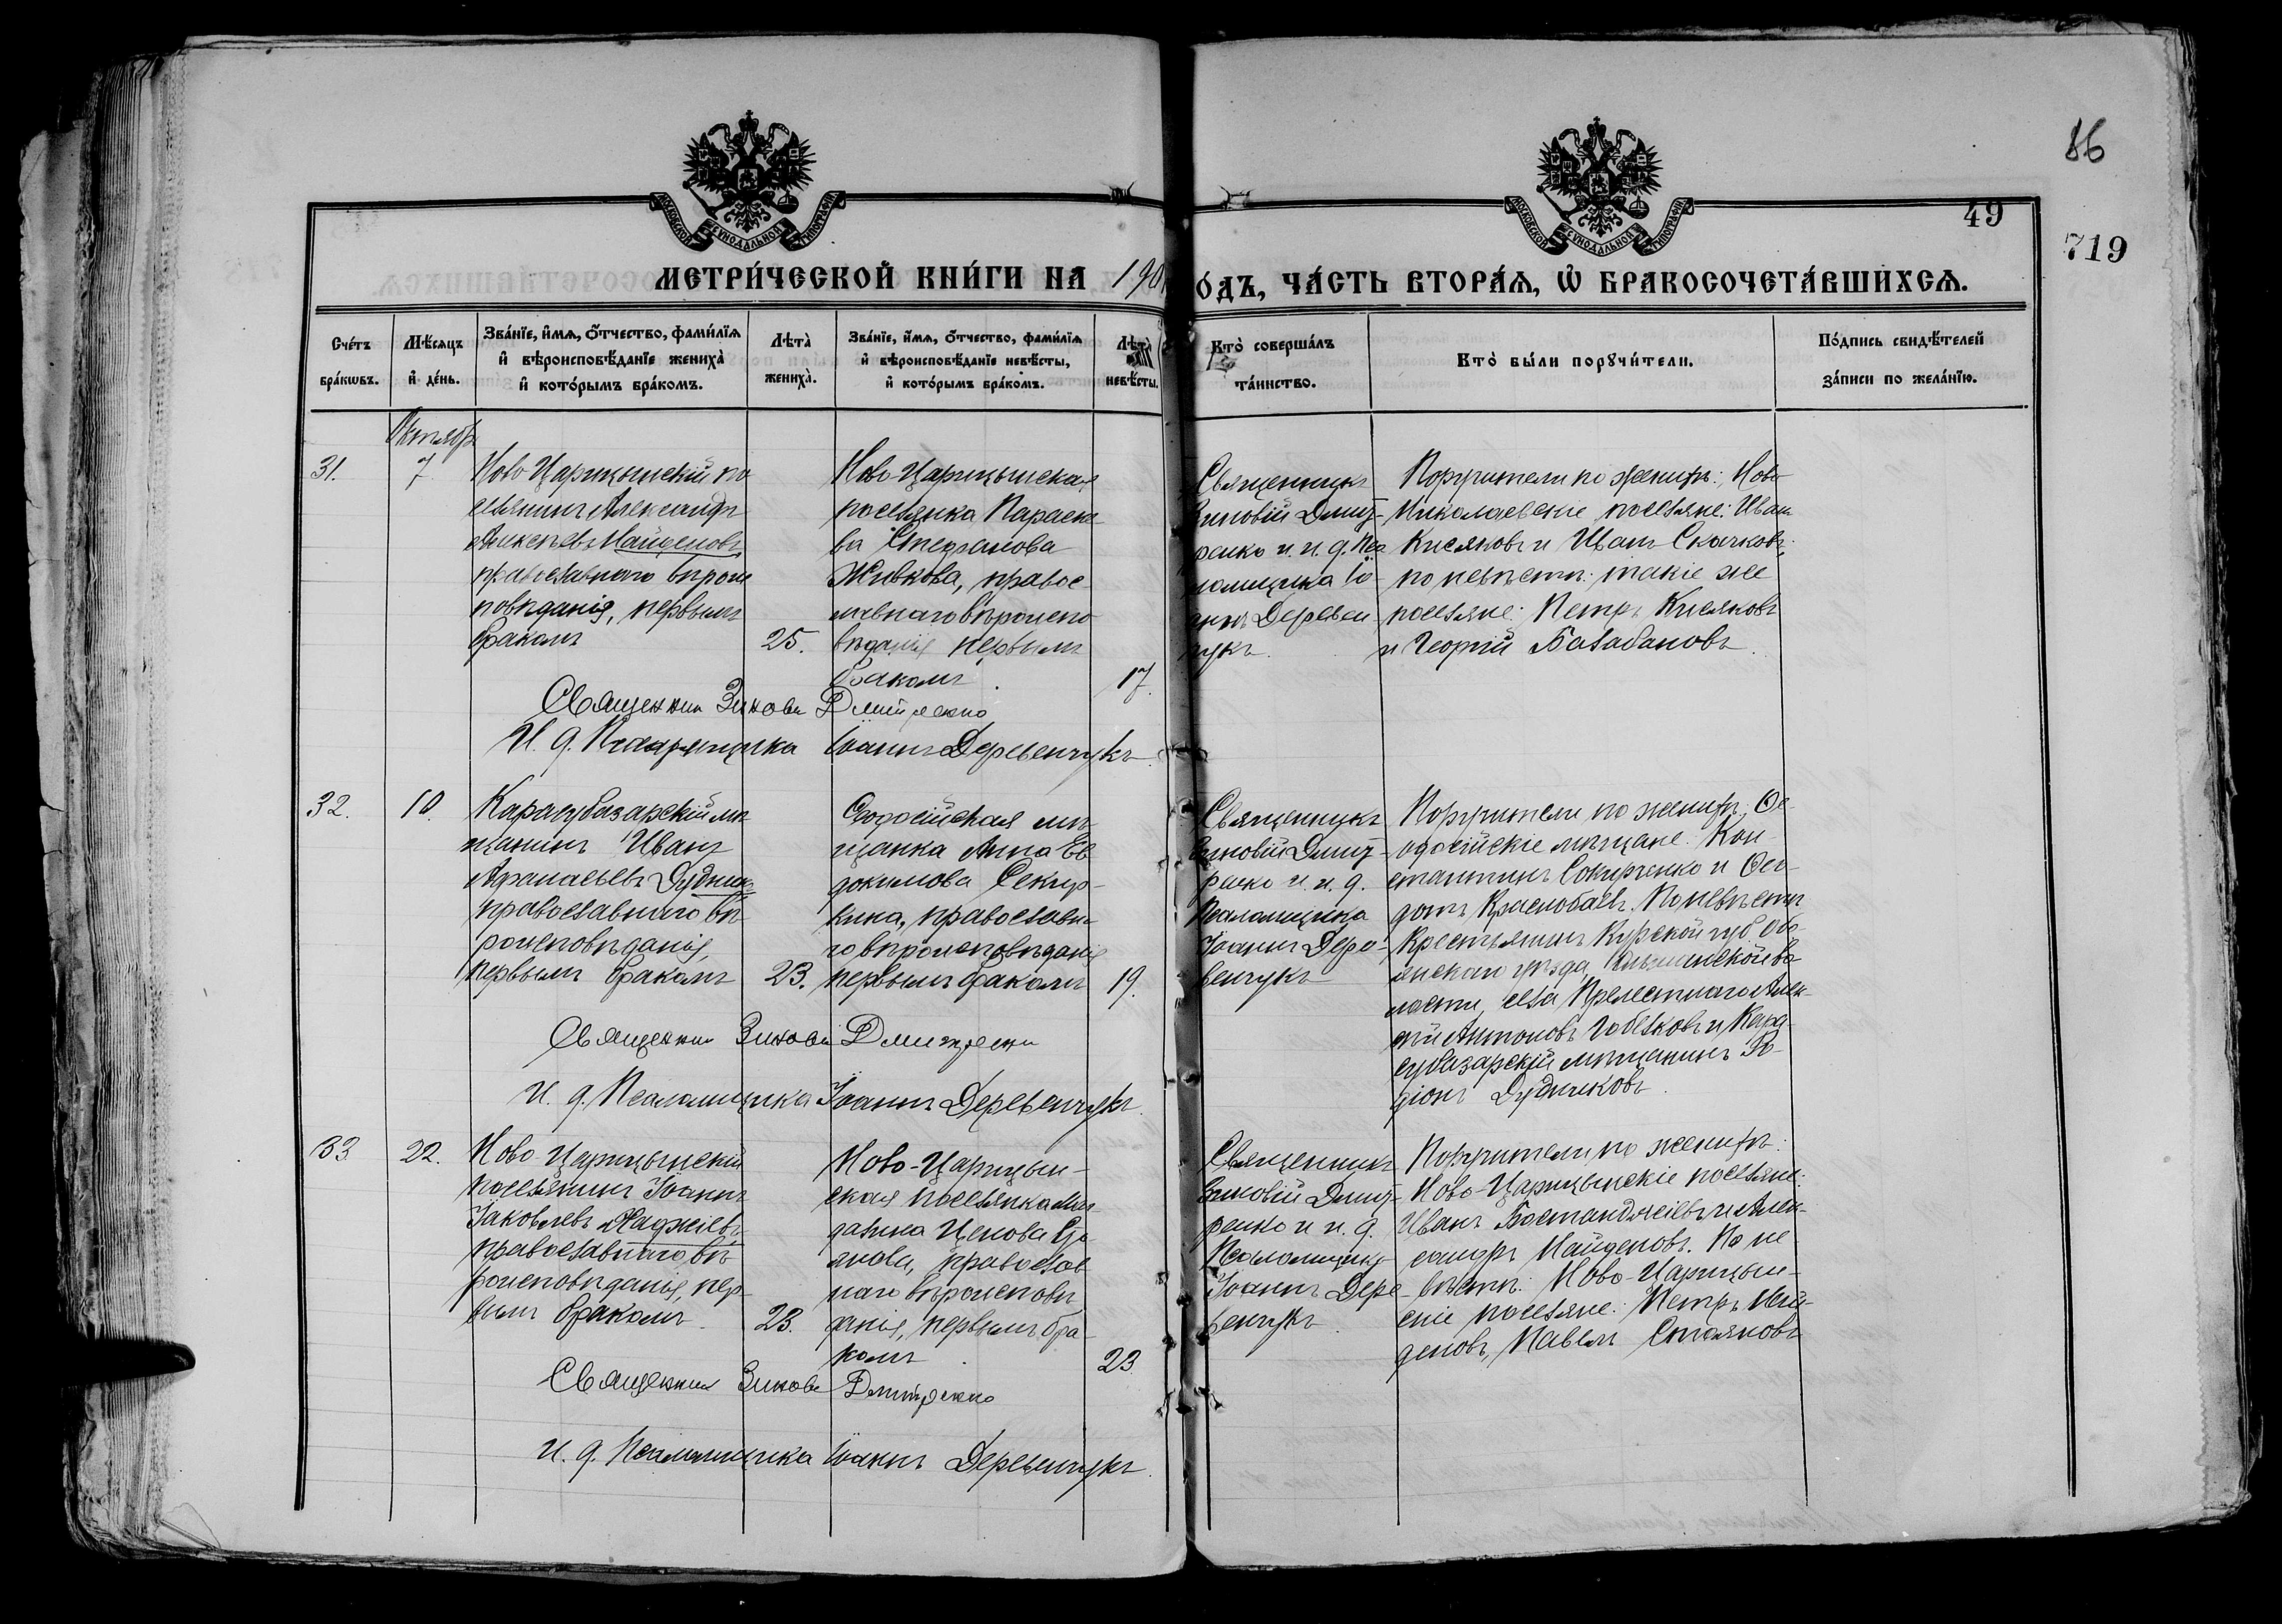 86
49
719
МОСКОВСКОЙ СѴНОДАЛЬНОЙ ТИПОГРАФІИ
МОСКОВСКОЙ СѴНОДАЛЬНОЙ ТИПОГРАФІИ
МЕТРИ́ЧЕСКОЙ КНИ́ГИ НА 190
О́ДЪ, ЧА́СТЬ ВТОРА́Ѧ, Ѡ҆ БРАКОСОЧЕТА́ВШИХСѦ.
Сче́тъ
бра́кѡвъ.
Мѣ́сяцъ
и҆ де́нь.
Зва́нїе, и҆́мѧ, о҆́тчество, фами́лїѧ
и҆ вѣроисповѣ́данїе жениха̀
и҆ кото́рымъ бра́комъ.
Лѣта̀
жениха̀.
Зва́нїе, и҆́мѧ, о҆́тчество, фами́лїѧ
и҆ вѣроисповѣ́данїе невѣ́сты,
и҆ кото́рымъ бра́комъ.
Лѣта̀
невѣ́сты.
Кто̀ соверша́лъ
та́инство.
Кто̀ бы́ли порꙋчи́тели.
По́дпись свидѣ́телей
за́писи по жела́нїю.
Октябр
31.
7
Ново Царицынскій по
селянинъ Александръ
Алексѣевъ Найденовъ,
православнаго вѣроис
повѣданія, первымъ
бракомъ
25.
Ново Царицынская
поселянка Параске
ва Стефанова
Живкова, правос
лавнаго вѣроиспо
вѣданія первымъ
бракомъ
17.
Священникъ
Зиновій Дмит-
ренко и и. д. Пса
ломщика Іо-
аннъ Деревен
чукъ.
Поручители по женихѣ: Ново
Николаевскіе поселяне: Иванъ
Кисяковъ и Иванъ Скачковъ;
по невѣстѣ: такіе же
поселяне: Петръ Кисяковъ
и Георгій Балабановъ.
Священник Зиновій Дмитренко
И. д. Псаломщика Іоаннъ Деревенчукъ.
32.
10.
Карасубазарскій мѣ
щанинъ Иванъ
Афанасьевъ Дудник
православнаго вѣ
роисповѣданія,
первымъ бракомъ
23.
Ѳеодосійская мѣ-
щанка Анна Ев
докимова Секир-
кина, православна
го вѣроисповѣданія
первымъ бракомъ
19.
Священникъ
Зиновій Дмит-
ренко и и. д.
Псаломщика
Іоаннъ Дере-
венчукъ
Поручители по женихѣ: Ѳе-
одосійскіе мѣщане: Кон-
стантинъ Сокиренко и Ѳео-
дотъ Краснобаевъ. По невѣстѣ
Крестьянинъ Курской губ. Обо-
янскаго уѣзда, во-
лости, села Прелестнаго Алек-
сѣй Антоновъ и Кара-
субазарскій мѣщанинъ Ро-
діонъ Дудниковъ.
Священник Зиновій Дмитренко
И. д. Псаломщика Іоаннъ Деревенчукъ.
33
22.
Ново Царицынскій
поселянинъ Іоаннъ
Іаковлевъ Хаджіевъ
православнаго вѣ
роисповѣданія, пер-
вымъ бракомъ.
23.
Ново-Царицын-
ская поселянка Маг
далина Ценова Сто
янова, православ
наго вѣроисповѣ
данія, первымъ бра-
комъ.
23.
Священникъ
Зиновій Дмит-
ренко и и. д.
Псаломщика
Іоаннъ Дере-
венчукъ
Поручители по женихѣ:
Ново-Царицынскіе поселяне:
Иванъ Бостанджіевъ и Алек-
сандръ Найденовъ. По не
вѣстѣ: Ново-Царицын-
скіе поселяне: Петръ Най-
деновъ, Павелъ Стояновъ
Священник Зиновій Дмитренко
И. д. Псаломщика Іоаннъ Деревенчукъ.